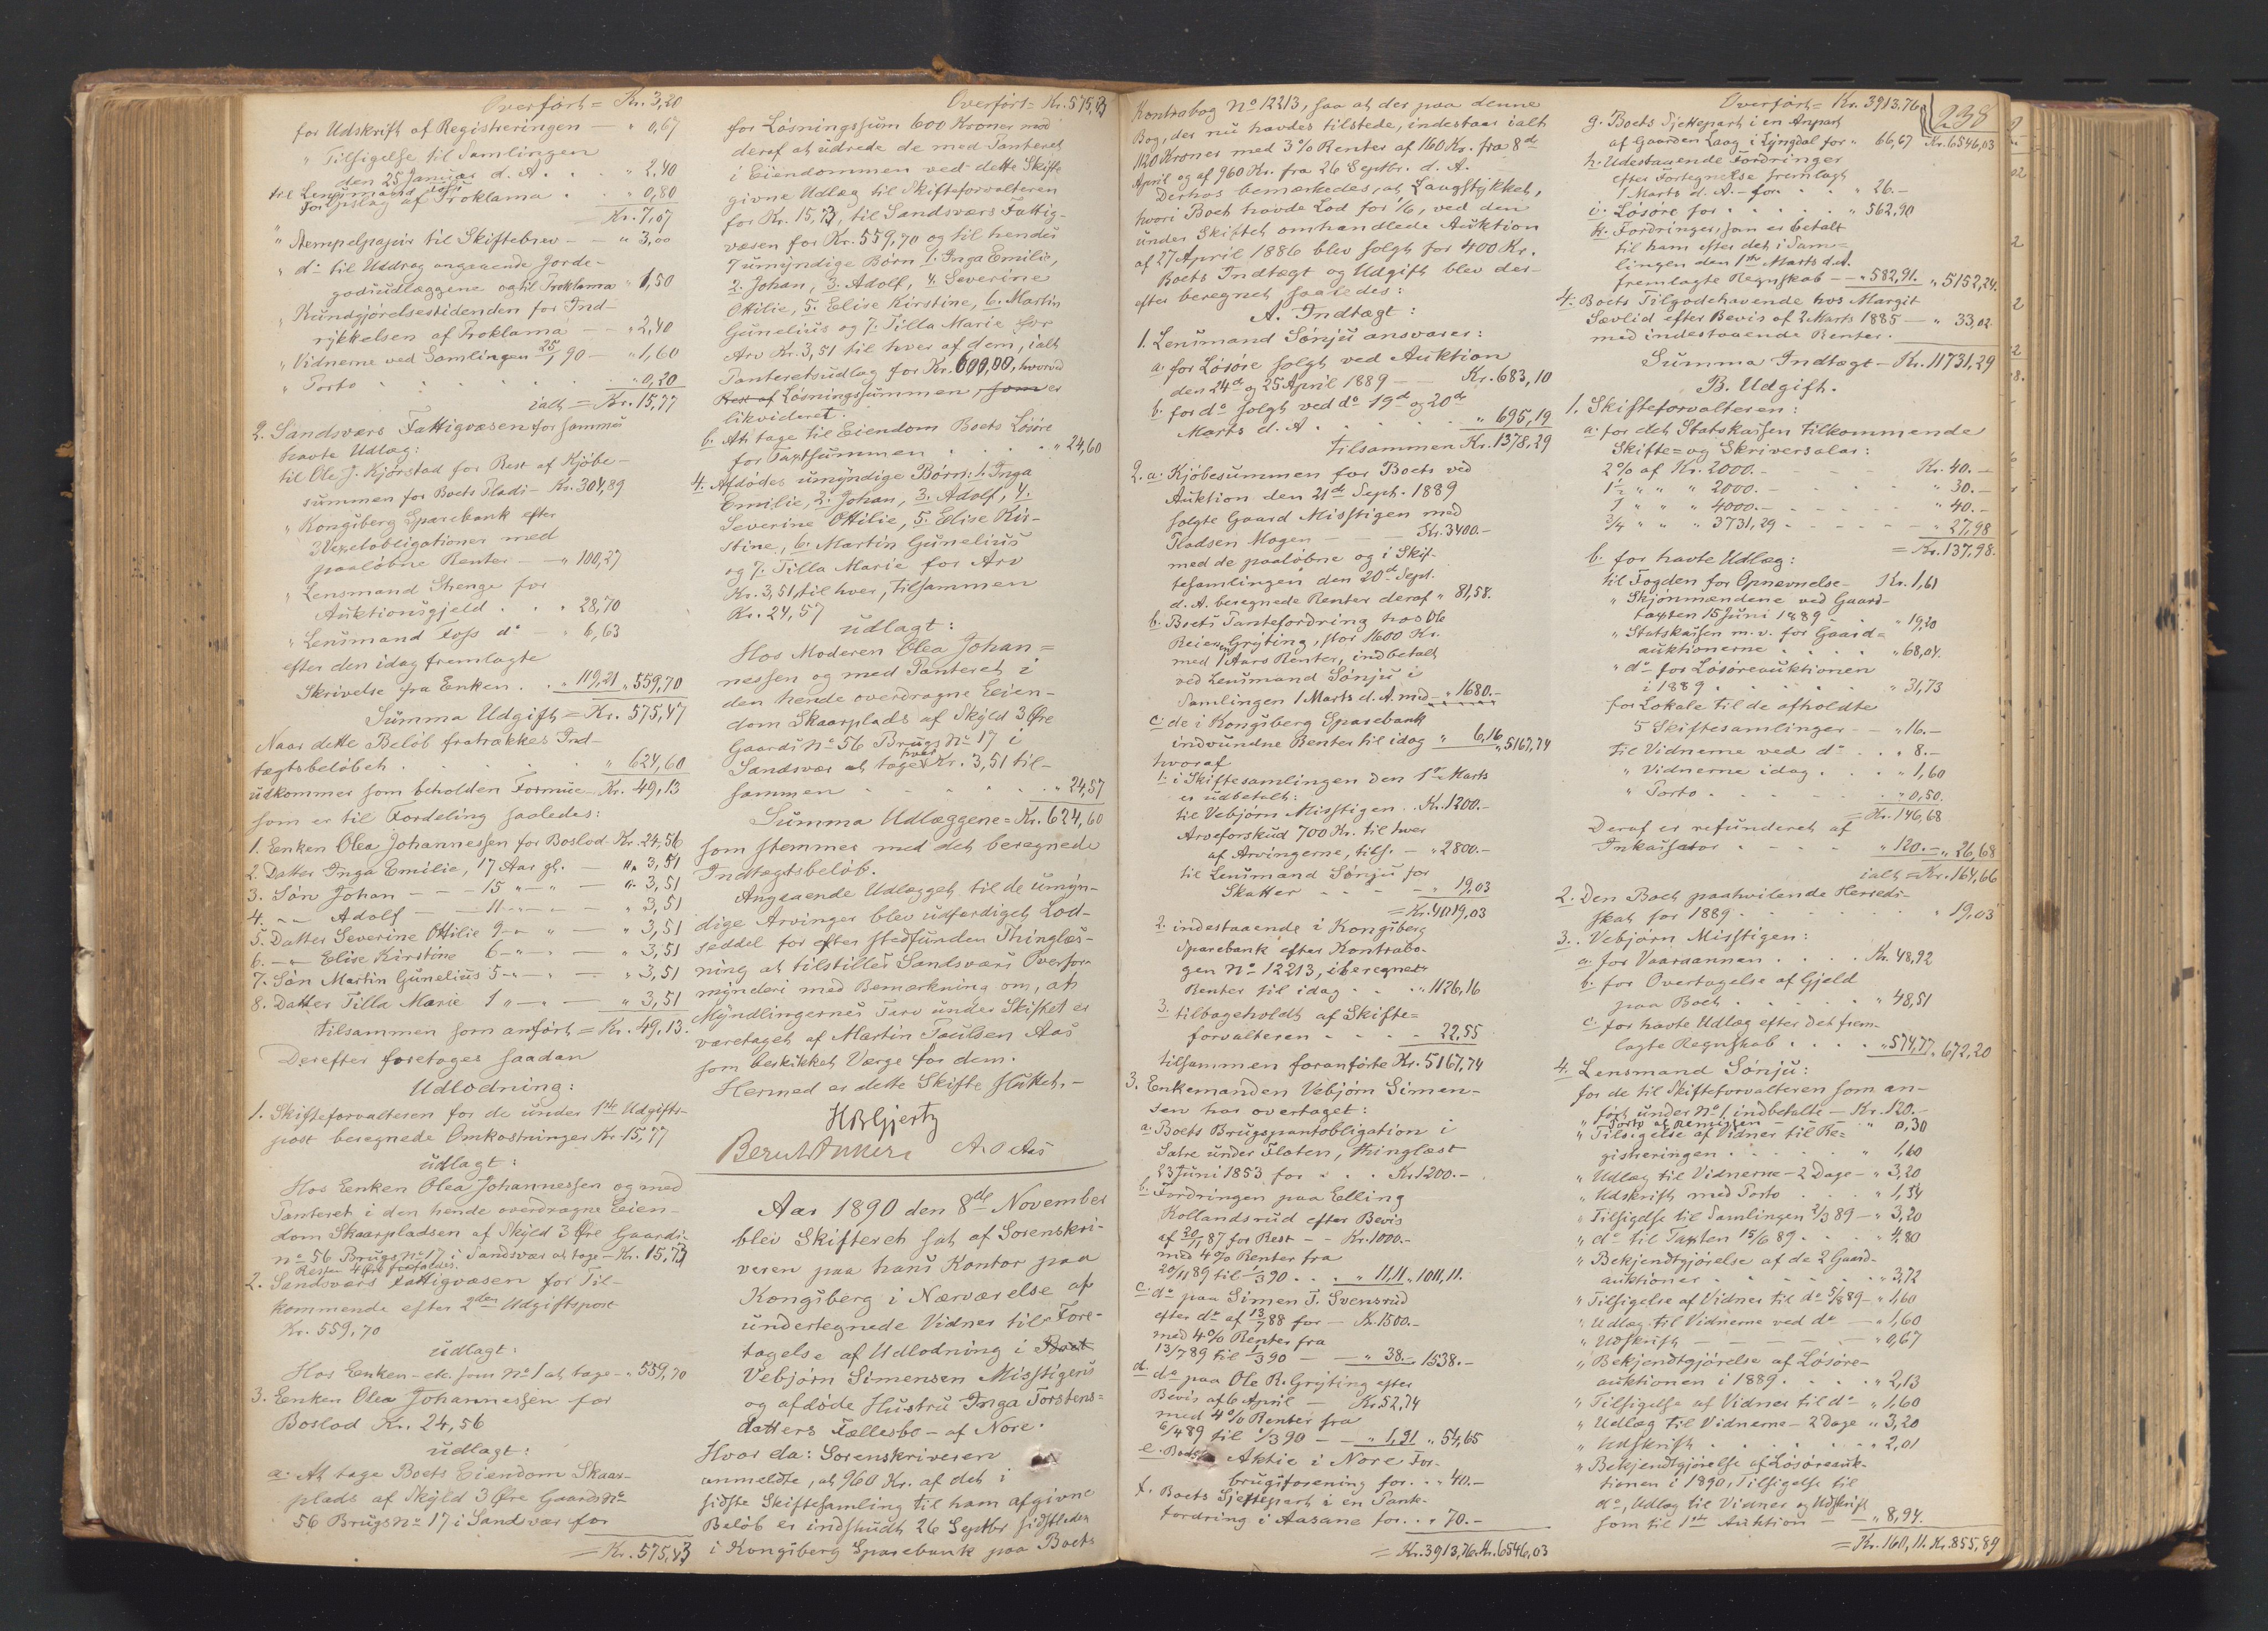 Overført = Kr. 3,20
for Udskrift af Registreringen — " 0,67
" Tilsigelse til Samlingen
den 25 Januar d. A. . . " 2,40
til Lensmand Foss
for Opslag af Proklama . . " 0,80
Kr. 7,07
" Stempelpapir til Skiftebrev — " 3,00
" do til Uddrag angaaende Jorde-
godsudlæggene og til Proklama " 1,50
" Kundgjørelsestidenden for Ind-
rykkelsen af Proklama — " 2,40
" Vidnerne ved Samlingen 25/1 90 — " 1,60
" Porto . . . . . " 0,20
ialt = Kr. 15,77
2. Sandsværs Fattigvæsen for samme
havte Udlæg:
til Ole J. Kjørstad for Rest af Kjøbe-
summen for Boets Plads — Kr. 304,89
" Kongsberg Sparebank efter
3 Vexelobligationer med
paaløbne Renter — " 100,27
" Lensmand Stenge for
Auktionsgjeld . . " 28,70
" Lensmand Foss do — " 6,63
efter den idag fremlagte
Skrivelse fra Enken . . " 119,21 " 559,70
Summa Udgift = Kr. 575,47
Naar dette Beløb fratrækkes Ind-
tægtsbeløbet . . . . . " 624,60
udkommer som beholden Formue — Kr. 49,13
som er til Fordeling saaledes:
1. Enken Olea Johannessen for Boslod Kr. 24,56
2. Datter Inga Emilie, 17 Aar gl. — " 3,51
3. Søn Johan — — 15 " — " — " 3,51
4. —"— Adolf — — 11 — " — " 3,51
5. Datter Severine Ottilie 9 —" " — " 3,51
6. —"— Elise Kirstine 6 —"— " — " 3,51
7. Søn Martin Gunelius 5 —"— " — " 3,51
8. Datter Tilla Marie 1 " — " — " 3,51
tilsammen som anført = Kr. 49,13.
Derefter foretoges saadan
Udlodning:
1. Skifteforvalteren for de under 1ste Udgifts-
post beregnede Omkostninger Kr. 15,77
udlagt:
Hos Enken Olea Johannessen og med
Panteret i den hende overdragne Eien-
dom Skaarpladsen af Skyld 3 Øre Gaards-
no 56 Brugs no 17 i Sandsvær at tage — Kr. 15,73
Resten 4 Øre frafaldes.
2. Sandsværs Fattigvæsen for Til-
kommende efter 2den Udgiftspost
Kr. 559,70
udlagt:
Hos Enken — etc. som No 1 at tage — " 559,70
3. Enken Olea Johannessen for
Boslod Kr. 24,56
udlagt:
a. At tage Boets Eiendom Skaar-
plads af Skyld 3 Øre Gaards No
56 Brugs No 17 i Sandsvær for
= Kr. 575,43
Overført = Kr. 575,43
for Løsningssum 600 Kroner mod
deraf at udrede de med Panteret
i Eiendommen ved dette Skifte
givne Udlæg til Skifteforvalteren
for Kr. 15,73, til Sandsværs Fattig-
væsen for Kr. 559,70 og til hendes
7 umyndige Børn 1. Inga Emilie,
2. Johan, 3. Adolf, 4. Severine
Ottilie, 5. Elise Kirstine, 6. Martin
Gunelius og 7. Tilla Marie for
Arv Kr. 3,51 til hver af dem, ialt
Panteretsudlæg for Kr. 600,00, hvorved
Rest af Løsningssummen, som er
likvideret.
b. At tage til Eiendom Boets Løsøre
for Taxtsummen . . . . " 24,60
4. Afdødes umyndige Børn: 1. Inga
Emilie, 2. Johan, 3. Adolf, 4.
Severine Ottilie, 5. Elise Kir-
stine, 6. Martin Gunelius
og 7. Tilla Marie for Arv
Kr. 3,51 til hver, tilsammen
Kr. 24,57
udlagt:
Hos Moderen Olea Johan=
nessen og med Panteret i
den hende overdragne Eien-
dom Skaarplads af Skyld 3 Øre
Gaards No 56 Brugs No 17 i
Sandsvær at tage hver Kr. 3,51 til-
sammen . . . . . " 24,57
Summa Udlæggene = Kr. 624,60
som stemmer med det beregnede
Indtægtsbeløb.
Angaaende Udlægget til de umyn-
dige Arvinger blev udfærdiget Lod-
seddel for efter stedfunden Thinglæs-
ning at tilstilles Sandsværs Overfor-
mynderi med Bemærkning om, at
Myndlingernes Tarv under Skiftet er
varetaget af Martin Paulsen Aas
som beskikket Værge for dem.
Hermed er dette Skifte sluttet. —
HBGjertz
A. O. Aas
Aar 1890 den 8de November
blev Skifteret sat af Sorenskri-
veren paa hans Kontor paa
Kongsberg i Nærværelse af
undertegnede Vidner til Fore-
tagelse af Udlodning i Boet
Vebjørn Simensen Misstigens
og afdøde Hustru Inga Torstens=
datters Fællesbo — af Nore.
Hvor da: Sorenskriveren
anmeldte, at 960 Kr. af det i
sidste Skiftesamling til ham afgivne
Beløb er indskudt 26 Septbr. sidstleden
i Kongsberg Sparebank paa Boets
Kontrabog No 12213, saa at der paa denne
Bog, der nu havdes tilstede, indestaar ialt
1120 Kroner med 3% Renter af 160 Kr. fra 8de
April og af 960 Kr. fra 26 Septbr. d. A. —
Derhos bemærkedes, at Laugstykket,
hvori Boet havde Lod for 1/6, ved den
under Skiftet omhandlede Auktion
af 27 April 1886 blev solgt for 400 Kr.
Boets Indtægt og Udgift blev der-
efter beregnet saaledes:
A. Indtægt:
1. Lensmand Sønju ansvarer:
a. for Løsøre solgt ved Auktion
den 24de og 25 April 1889 — — Kr. 683,10
b. for do solgt ved do 19de og 20de
Marts d. A. . . . . . " 695,19
tilsammen Kr. 1378,29
2. a. Kjøbesummen for Boets ved
Auktion den 21de Sept. 1889
solgte Gaard Misstigen med
Pladsen Mogen — — — Kr. 3400.—
med de paaløbne og i Skif-
tesamlingen den 20de Sept.
d. A. beregnede Renter deraf " 81,58.
b. Boets Pantefordring hos Ole
Reiersen Grýting, stor 1600 Kr.
med 1 Aars Renter, indbetalt
ved Lensmand Sønju i
Samlingen 1 Marts d. A. med — " 1680.—
c. de i Kongsberg Sparebank
indvundne Renter til idag " 6,16 " 5167,74
hvoraf
1. i Skiftesamlingen den 1ste Marts
er udbetalt:
til Vebjørn Misstigen . . Kr. 1200.—
Arveforskud 700 Kr. til hver
af Arvingerne, tils. — " 2800.—
til Lensmand Sønju for
Skatter — — — — " 19,03
= Kr. 4019,03
2. indestaaende i Kongsberg
Sparebank efter Kontrabo-
gen No 12213, iberegnet
Renter til idag . . . " 1126,16
3. tilbageholdt af Skifte=
forvalteren — — — — 22,55
tilsammen foranførte Kr. 5167,74
3. Enkemanden Vebjørn Simen-
sen har overtaget:
a. Boets Brugspantobligation i
Satre under Floten, thinglæst
23 Juni 1853 for . . . Kr. 1200.—
b. Fordringen paa Elling
Kollandsrud efter Bevis
af 20/11 87 for Rest — — Kr. 1000.—
med 4% Renter fra
20/11 89 til 1/3 90 . . . " 11,11 " 1011,11.
c. do paa Simen T. Svensrud
efter do af 13/7 88 for — Kr. 1500.—
med 4% Renter fra
13/7 89 til 1/3 90 — — " 38.— 1538.—
d. do paa Ole R. Grýting efter
Bevis af 6 April — Kr. 52,74
med 4% Renter fra
6/4 89 til 1/3 90 — — " 1,91 " 54,65
e. Boets Aktie i Nore For-
brugsforening for . . " 40.—
f. Boets Sjettepart i en Pante-
fordring i Aasane for . . " 70.—
= Kr. 3913,76. Kr. 6546,03
238
Overført = Kr. 3913,76 Kr. 6546,03
g. Boets Sjettepart i en Anpart
af Gaarden Laag i Lyngdal for " 66,67
h. Udestaaende Fordringer
efter Fortegnelse fremlagt
1 Marts d. A. — for . . " 26.—
i. Løsøre for . . . . . " 562,90
k. Fordringer, som er betalt
til ham efter det i Sam=
lingen den 1ste Marts d. A.
fremlagte Regnskab — — " 582,91. " 5152,24.
4. Boets Tilgodehavende hos Margit
Sævlid efter Bevis af 2 Marts 1885 — " 33,02
med indestaaende Renter.
Summa Indtægt — Kr. 11731,29
B. Udgift.
1. Skifteforvalteren:
a. for det Statskassen tilkommende
Skifte= og Skriversalar:
2% af Kr. 2000.— — — Kr. 40.—
1½ " " " 2000.— . . " 30.—
1 " " " 4000.— — — " 40.—
3/4 " " " 3731,29 — — — " 27,98
= Kr. 137,98.
b. for havte Udlæg:
til Fogden for Opnævnelse — Kr. 1,61
" Skjønmændene ved Gaard-
taxten 15 Juni 1889 — . . " 19,20
" Statskassen m. v. for Gaard=
auktionerne . . . . " 68,04.
" do for Løsøreauktionen
i 1889 . . . . . . " 31,73
for Lokale til de afholdte
5 Skiftesamlinger — — " 16.—
til Vidnerne ved do — . . " 8.—
" Vidnerne idag . . . " 1,60
" Porto . . . . . . " 0,50.
= Kr. 146,68
Deraf er refunderet af
Inkassator . . — — " 120.— " 26,68
ialt = Kr. 164,66
2. Den Boet paahvilende Herreds-
skat for 1889 . . . . . . " 19,03
3. Vebjørn Misstigen:
a. for Vaaraannen . . . . Kr. 48,92
b. for Overtagelse af Gjeld
paa Boet . . . . . . " 48,51
c. for havte Udlæg efter det frem-
lagte Regnskab . . . . " 574,77 " 672,20
4. Lensmand Sønju:
for de til Skifteforvalteren som an-
ført under No 1 indbetalte — Kr. 120.—
" Porto af Remissen — — " 0,30
" Tilsigelse af Vidner til Re=
gistreringen . . . . . " 1,60
" Udlæg til Vidnerne — 2 Dage — " 3,20
" Udskrift med Porto . . . " 1,34
" Tilsigelse til Samlingen 2/3 89 — " 3,20
" do til Taxten 15/6 89 . . . " 4,80
" Bekjendtgjørelse af de 2 Gaard-
auktioner . . . . . . " 3,72
" Tilsigelse af Vidner til do 5/8 89 — " 1,60
" Udlæg til Vidnerne ved do — " 1,60
" Udskrift — — — — — " 0,67
" Bekjendtgjørelse af Løsøre-
auktionen i 1889 . . . . " 2,13
" Tilsigelse af Vidner til do — " 1,60
" Udlæg til Vidnerne — 2 Dage " 3,20
" Udskrift . . . . . . . " 2,01
" Bekjendtgjørelse af Løsøreauk-
tionen i 1890, Tilsigelse til
do, Udlæg til Vidner og Udskrift
som til 1ste Auktion — — " 8,94.
= Kr. 160,11. Kr. 855,89